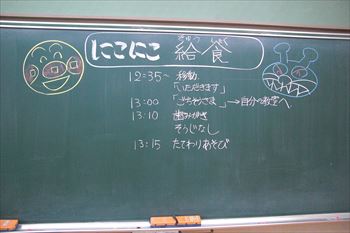 にこにこ 給食
きゅう しょく
12:35～ 移動
「いただきます」
13:00 「ごちそうさま」→自分の教室へ
13:10 歯みがき
そうじなし
13:15 たてわりあそび